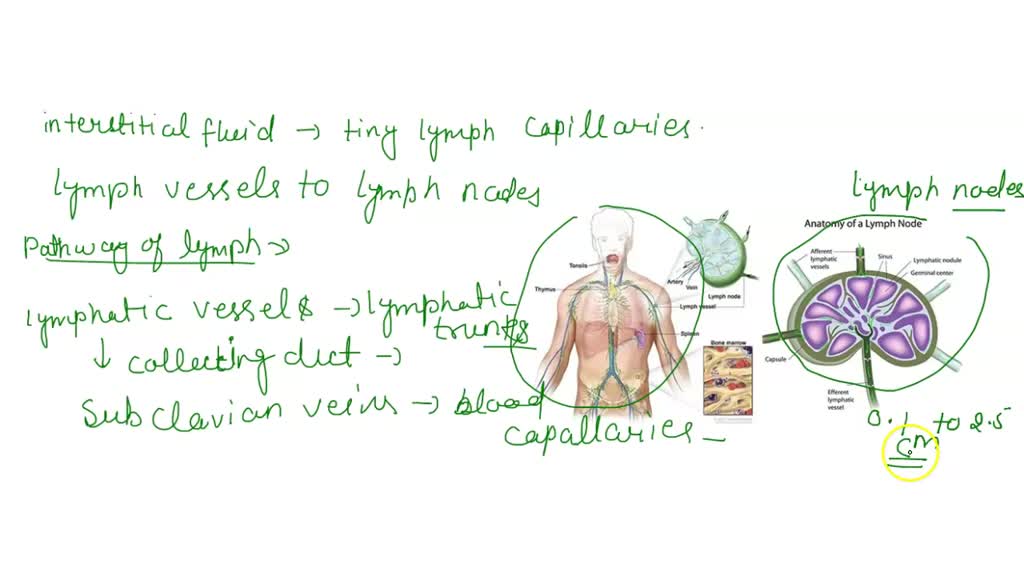 interstitial fluid → tiny lymph capillaries.
lymph vessels to lymph nodes
lymph nodes
Pathway of lymph →
lymphatic vessels → lymphatic
trunks
↓ collecting duct →
Subclavian veins → blood
capallaries –
Tonsils
Thymus
Artery
Vein
Lymph node
Lymph vessel
Spleen
Bone marrow
Anatomy of a Lymph Node
Afferent
lymphatic
vessels
Sinus
Lymphatic nodule
Germinal center
Capsule
Efferent
lymphatic
vessel
0.1 to 2.5
cm